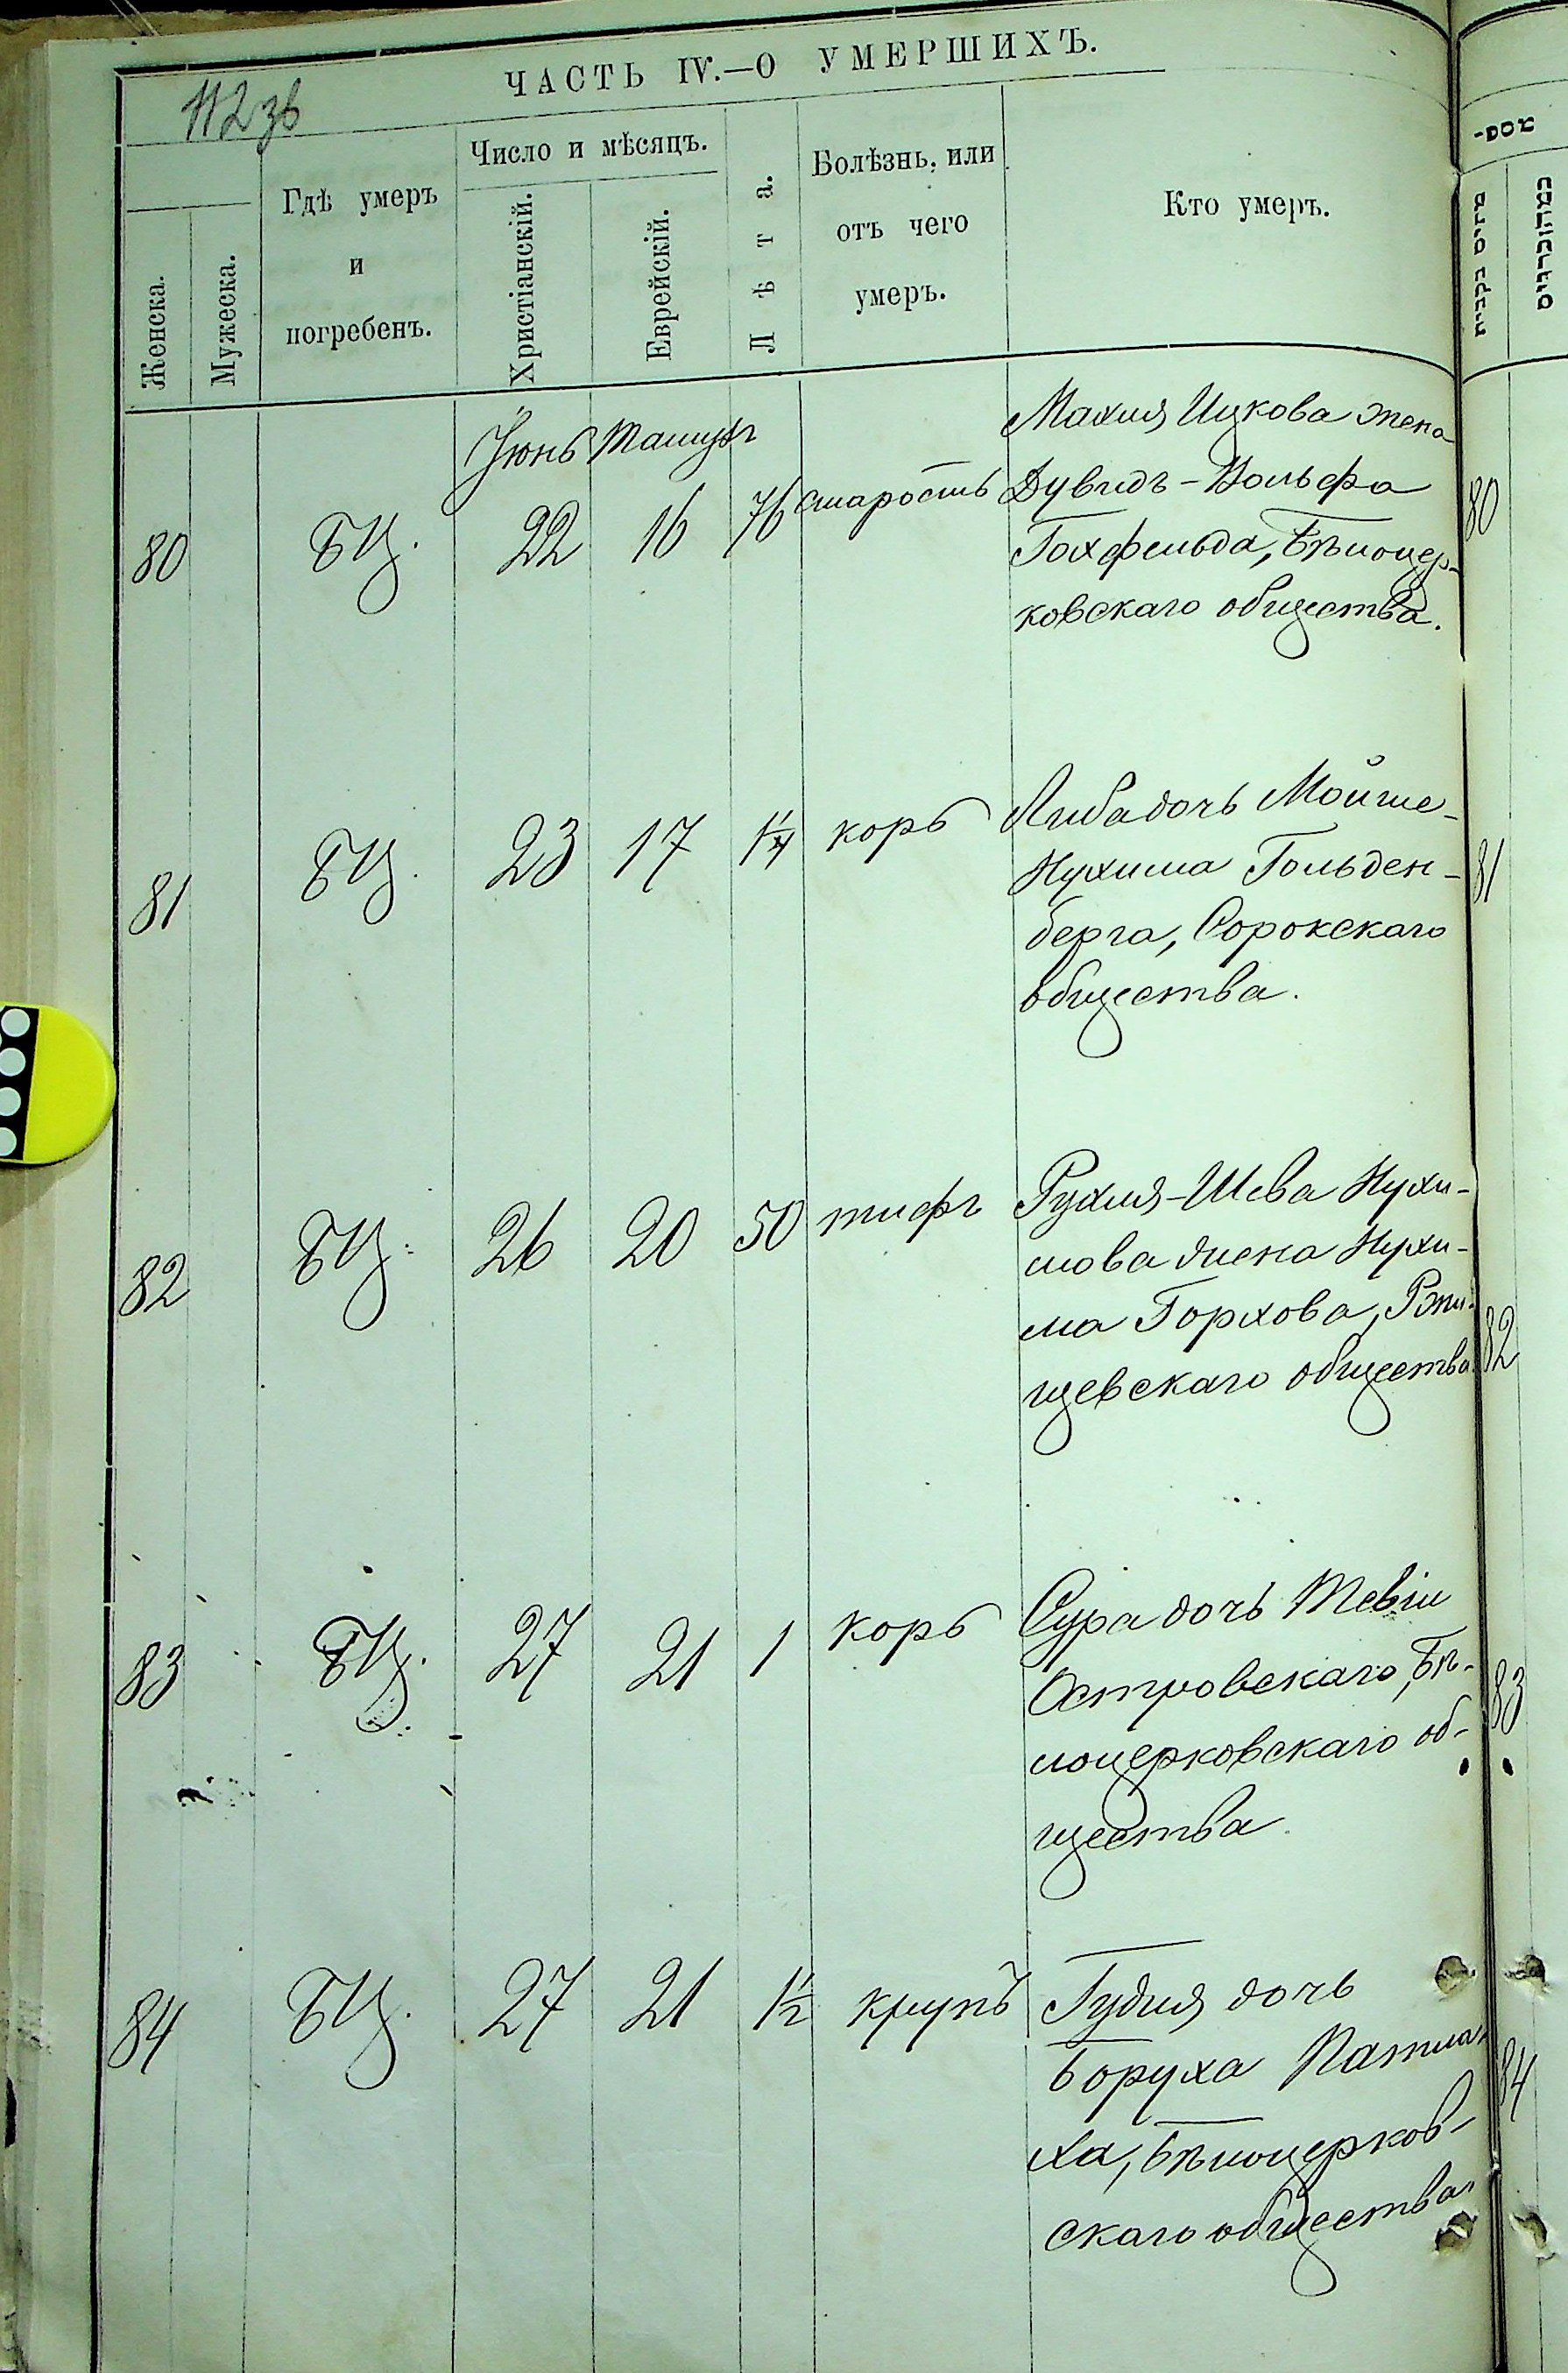 ЧАСТЬ IV.—О УМЕРШИХЪ.
112зв
Женска.
Мужеска.
Гдѣ умеръ
и
погребенъ.
Число и мѣсяцъ.
Христіанскій.
Еврейскій.
Лѣта.
Болѣзнь, или
отъ чего
умеръ.
Кто умеръ.
Іюнь Тамузъ
80 БЦ. 22 16 76 старость
Махля Ицкова жена
Дувидъ-Вольфа
Гохфельда, Бѣлоцер-
ковскаго общества.
80
81 БЦ. 23 17 1¼ корь
Либа дочь Мойше-
Нухима Гольден-
берга, Сорокскаго
общества.
81
82 БЦ. 26 20 50 тифъ
Рухля-Шева Нухи-
мова жена Нухи-
ма Горхова, Ржи-
щевскаго общества
82
83 БЦ. 27 21 1 корь
Сура дочь Тевіи
Островскаго, Бѣ-
лоцерковскаго об-
щества.
83
84 БЦ. 27 21 1½ крупъ
Гудля дочь
Боруха Патла-
ха, Бѣлоцерков-
скаго общества
84